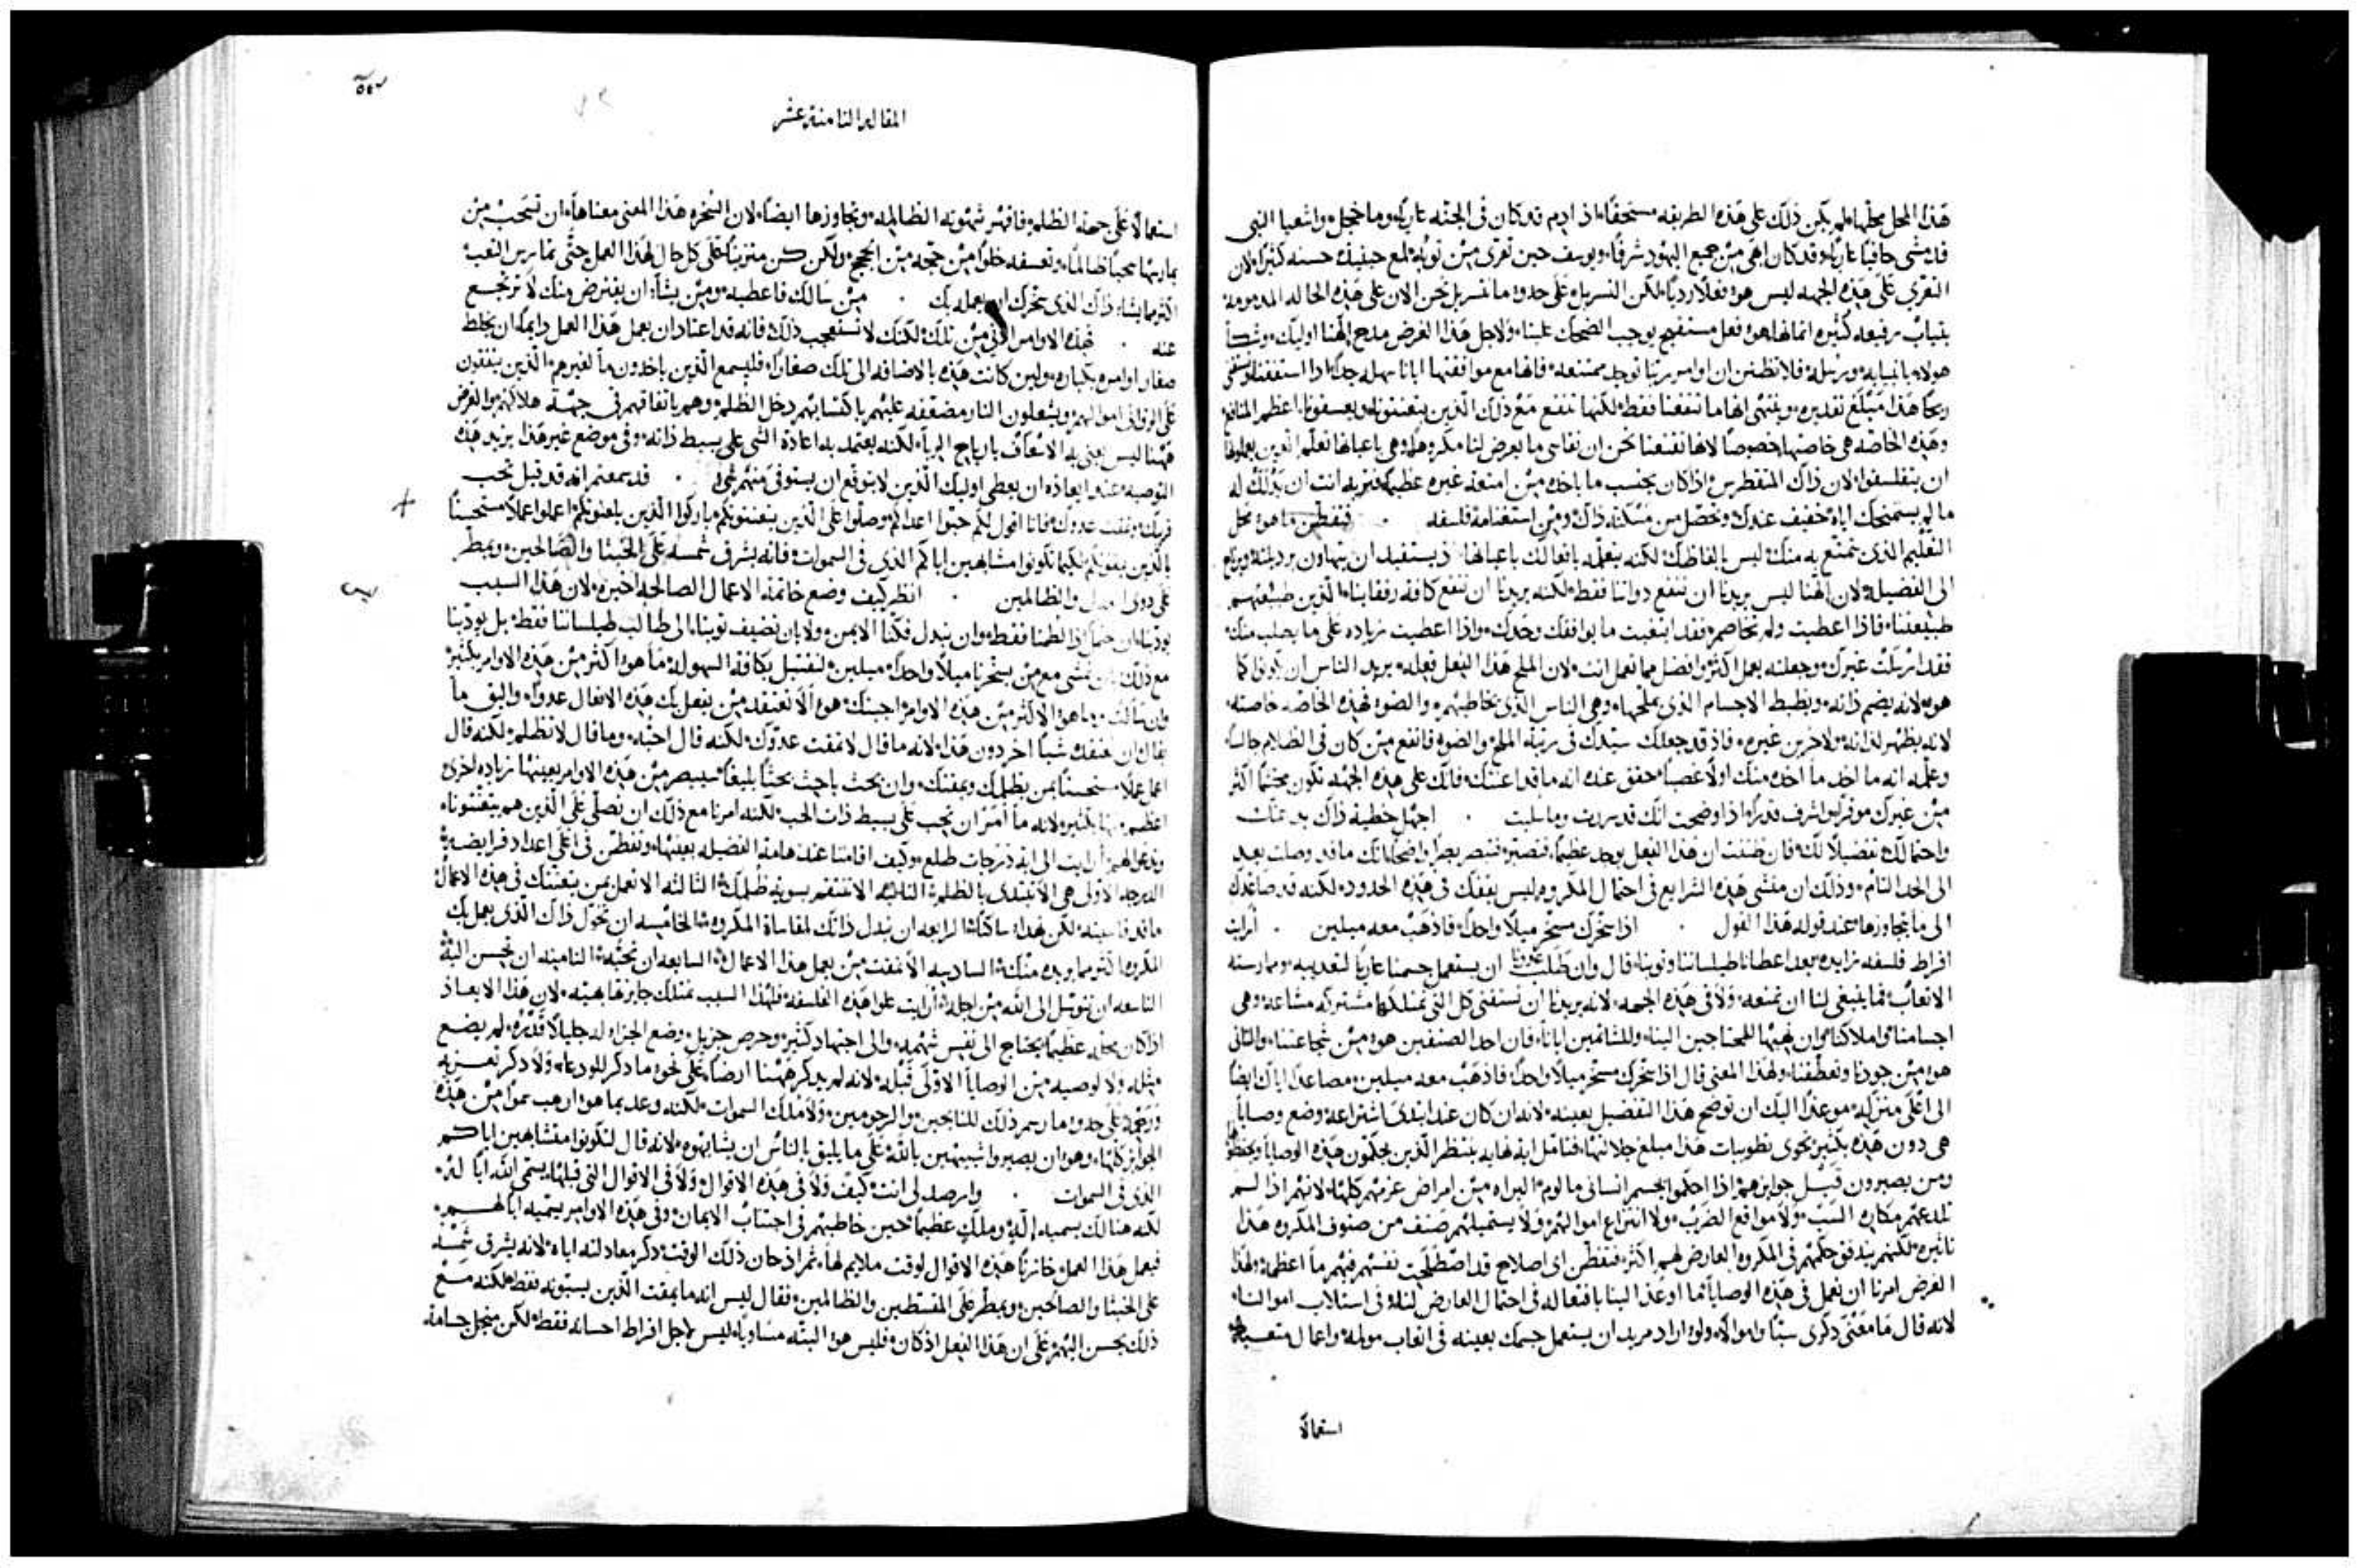 هذا المحل محلها، لم يكن ذلك على هذه الطريقه مستحقا، اذ ادم قد كان فى الجنه عاريا، وما خجل، واشعيا النبى
قد مشى حافيا عاريا، وقد كان ابهى من جميع اليهود شرفا، ويوسف حين تعرى من ثوبه لمع حينيذ حسنه كثيرا، لان
التعرى على هذه الجهه ليس هو فعلا رديا، لكن التسربل على حدو ما نتسربل نحن الان على هذه الحاله المذمومه
بثياب رفيعه كثيره اثمانها، هو فعل مستقبح يوجب الضحك علينا، ولاجل هذا الغرض مدح الهنا اوليك،
هولاء بانبيايه ورسله، فلا نظنن ان اوامر ربنا توجد ممتنعه، فانها مع موافقتها ايانا سهله جدا، اذا استفقنا
ربحا هذا مبلغ تقديره، وينتهى انها ما تنفعنا فقط، لكنها تنفع مع ذلك الذين يتعنتونا ويعسفونا، اعظم المنافع
وهذه الخاصه هى خاصتها خصوصا لانها تقنعنا نحن ان نقاسى ما يعرض لنا مكروها، وهى باعيانها تعلم الذين يعملونها
ان يتفلسفوا، لان ذاك المتغطرس اذا كان يحتسب ما ياخذه من امتعة غيره عظيما، فتريه انت ان بذلك له
ما لم يستمنحك اياه خفيف عندك، وتحصل من مسكنة ذاك ومن استغنامه فلسفه . فتفطن ما هو محل
التعليم الذى تمتع به منك، ليس بالفاظك، لكنه يتعلمه بافعالك باعيانها اذ يستفيد ان يتهاون برذيلته
الى الفضيله، لان الهنا ليس يريدنا ان ننفع ذواتنا فقط، لكنه يريدنا ان ننفع كافة رفقاينا، الذين طبيعتهم
طبيعتنا، فاذا اعطيت ولم تخاصم، فقد ابتغيت ما يوافقك وحدك، واذا اعطيت زياده على ما يطلب منك
فقد ارسلت غيرك، وجعلته يعمل اكثر وافضل مما تعمل انت، لان الملح هذا الفعل فعله، يريد الناس ان يكونوا كما
هو، لانه يضم ذاته، ويضبط الاجسام الذى يملحها، وهى الناس الذى يخاطبهم، والضوء فهذه الخاصه خاصته
لانه يظهر لذاته ولاخرين غيره، فاذ قد جعلك سيدك فى رتبة الملح والضوء فانفع من كان فى الظلام جالسا
وعلمه انه ما اخذ ما اخذه منك اولا غصبا، حقق عنده انه ما قد اعنتك، فانك على هذه الجهه تكون محتشما اكثر
من غيرك موقرا واشرف قدرا، اذا اوضحت انك قد سررت وما سلبت . اجعل خطية ذاك
واحتمالك تفضيلا لك، فان ظننت ان هذا الفعل يوجد عظيما، فتصبر، فتبصر بصرا واضحا، انك ما قد وصلت بعد
الى الحد التام، وذلك ان منشى هذه الشرايع فى احتمال المكروه، ليس يقفك فى هذه الحدود، لكنه قد صاعدك
الى ما يتجاوزها، عند قوله هذا القول . اذا سخرك مسخر ميلا واحدا، فاذهب معه ميلين . ارايت
افراط فلسفه زايده، بعد اعطانا طيلساننا وثوبنا، قال وان طلب عدونا ان يستعمل جسمنا عاريا لتعذيبه وممارسة
الاتعاب، فما ينبغى لنا ان نمنعه، ولا فى هذه الجهه، لانه يريدنا ان نستقنى كل التى نمتلكها مشتركه مشاعه، وهى
اجسامنا واملاكنا، وان نهبها للمحتاجين الينا، وللشاتمين ايانا، فان احد الصنفين هو من شجاعتنا، والثانى
هو من جودنا وتعطفنا، ولهذا المعنى قال اذا سخرك مسخر ميلا واحدا فاذهب معه ميلين، مصاعدا اياك ايضا
الى اعلى منزله، موعزا اليك ان توضح هذا التفضيل بعينه، لانه ان كان عند ابتدى اشتراعه وضع وصايا
هى دون هذه بكثير، تحوى تطويبات هذا مبلغ جلالتها، فتامل اية نهايه ينتظر الذين يحكمون هذه الوصايا
ومن يصيرون قبل جوايزهم، اذا احكموا بجسم انسانى مالوم، البراه من امراض عزمهم كلها، لانهم اذا لم
تلدعهم مكاره السب، ولا مواقع الضرب، ولا انتزاع اموالهم، ولا يستميلهم صنف من صنوف المكروه هذا
تاثيره، لكنهم يتدفق حلمهم فى المكروه العارض لهم اكثر، فتفطن اى اصلاح قد اصطلحت نفسهم فيهم ما اعظمه، ولهذا
الغرض امرنا ان نعمل فى هذه الوصايا ما اوعز الينا بافتعاله فى احتمال العارض لنا، وفى استلاب اموالنا،
لانه قال ما معنى ذكرى سبا واموالا، ولو اراد مريد ان يستعمل جسمك بعينه فى اتعاب مولمه واعمال متعبه
استعمالا
المقاله الثامنة عشر
استعمالا على جهة الظلم، فاقهر شهوته الظالمه، وتجاوزها ايضا، لان التسخره هذا المعنى معناها، ان تسحب من
يمارسها سحبا ظالما، وتعسفه خلوا من حجه من الحجج، ولكن كن متزينا على كل حال لهذا العمل حتى تمارس التعب
اكثر مما يشاء ذاك الذى سخرك ان يعمله بك . من سالك فاعطيه، ومن يشاء ان يقترض منك لا ترتجع
عنه . فهذه الاوامر ادنى من تلك، لكنك لا تستعجب ذلك، فانه قد اعتاد ان يعمل هذا العمل دايما، ان يخلط
صغار اوامره بكباره، ولين كانت هذه بالاضافه الى تلك صغارا، فليسمع الذين ياخذون ما لغيرهم، الذين ينفقون
على الزوانى اموالهم، ويشعلون النار مضعفه عليهم باكتسابهم دخل الظلم، وهم بانفاقهم فى جهة هلاكهم، والغرض
ههنا ليس يعنى به الاسعاف بارباح الربا، لكنه يعتمد به اعادة الشى على بسيط ذاته، وفى موضع غير هذا يزيد هذه
التوصيه عندنا بعاده ان يعطى اوليك الذين لا يتوقع ان يستوفى منهم شى . قد سمعتم انه قد قيل تحب
قريبك وتمقت عدوك، فانا اقول لكم حبوا اعداكم، وصلوا على الذين يتعنتونكم، باركوا الذين يلعنونكم، اعملوا عملا مستحسنا
بالذين يمقتونكم لكيما تكونوا مشابهين اباكم الذى فى السموات، فانه يشرق شمسه على الخبثا والصالحين، ويمطر
على ذوى العدل والظالمين . انظر كيف وضع خاتمة الاعمال الصالحه اخيره، لان هذا السبب
يودبنا ان نحتمل اذا لطمنا فقط، وان نبدل فكنا الايمن، ولا بان نضيف ثوبنا الى طالب طيلساننا فقط، بل يودبنا
مع ذلك بان نمشى مع من يسخرنا ميلا واحدا، ميلين، لنقتبل بكافة السهوله، ما هو اكثر من هذه الاوامر بكثير
وان سالت وما هو الاكثر من هذه الاوامر، اجبتك هو الا تعتقد من يفعل بك هذه الافعال عدوك، واليق ما
يقال ان تعتقد شيا اخر دون هذا، لانه ما قال لا تمقت عدوك، لكنه قال احبه، وما قال لا تظلم، لكنه قال
اعمل عملا مستحسنا بمن يظلمك ويمقتك، وان بحث باحث بحثا بليغا، سيبصر من هذه الاوامر بعينها زياده اخرى
اعظم منها بكثير، لانه ما امر ان نحب على بسيط ذات الحب، لكنه امرنا مع ذلك ان نصلى على الذين هم يتعنتونا،
وندعوا لهم، ارايت الى اية درجات طلع، وكيف اقامنا عند هامة الفضيله بعينها، وتفطن فى اعلى اعداد فرايضه،
الدرجه الاولى هى الا تبتدى بالظلم، الثانيه الا تنتقم بسويه ظلمك، الثالثه الا تعمل بمن يتعنتك فى هذه الاعمال
ما قد قاسيته، لكن تهدا ساكتا، الرابعه ان تبذل ذاتك لمقاساة المكروه، الخامسه ان تخول ذاك الذى يعمل بك
المكروه اكثر مما يريده منك، السادسه الا تمقت من يعمل هذا الاعمال، السابعه ان تحبه، الثامنه ان تحسن اليه
التاسعه ان تتوسل الى الله من اجله، ارايت علو هذه الفلسفه، فلهذا السبب تمتلك جايزه بهيه، لان هذا الايعاز
اذ كان محله عظيما، يحتاج الى نفس شهمه، والى اجتهاد كثير، وحرص جزيل، وضع الجزا له جليلا قدره، لم يضع
مثله ولا لوصيه من الوصايا الاولى قبله، لانه لم يذكر ههنا ارضا، على نحو ما ذكر للودعا، ولا ذكر تعزيه
ورحمه، على حدو ما رسم ذلك للنايحين، والرحومين، ولا ملك السموات، لكنه وعد بما هو ارهب سموا من هذه
الجوايز كلها، وهو ان يصيروا شبيهين بالله، على ما يليق بالناس ان يشابهوه، لانه قال لتكونوا متشابهين اباكم
الذى فى السموات . وارصد لى انت، كيف ولا فى هذه الاقوال، ولا فى الاقوال التى قبلها، يسمى الله ابا له،
لكنه هنالك يسميه الله، وملك عظيما، حين خاطبهم فى اجتناب الايمان، وفى هذه الاوامر يسميه اباهم،
فيعمل هذا العمل خازنا هذه الاقوال لوقت ملايم لها، ثم اذ حان ذلك الوقت، ذكر معادلته اياه، لانه يشرق شمسه
على الخبثا والصالحين، ويمطر على المقسطين والظالمين، فقال ليس انه ما يمقت الذين يسبونه فقط، لكنه مع
ذلك يحسن اليهم، على ان هذا الفعل اذ كان، فليس هو البته مساويا، ليس لاجل افراط احسانه فقط، لكن من اجل جسامة